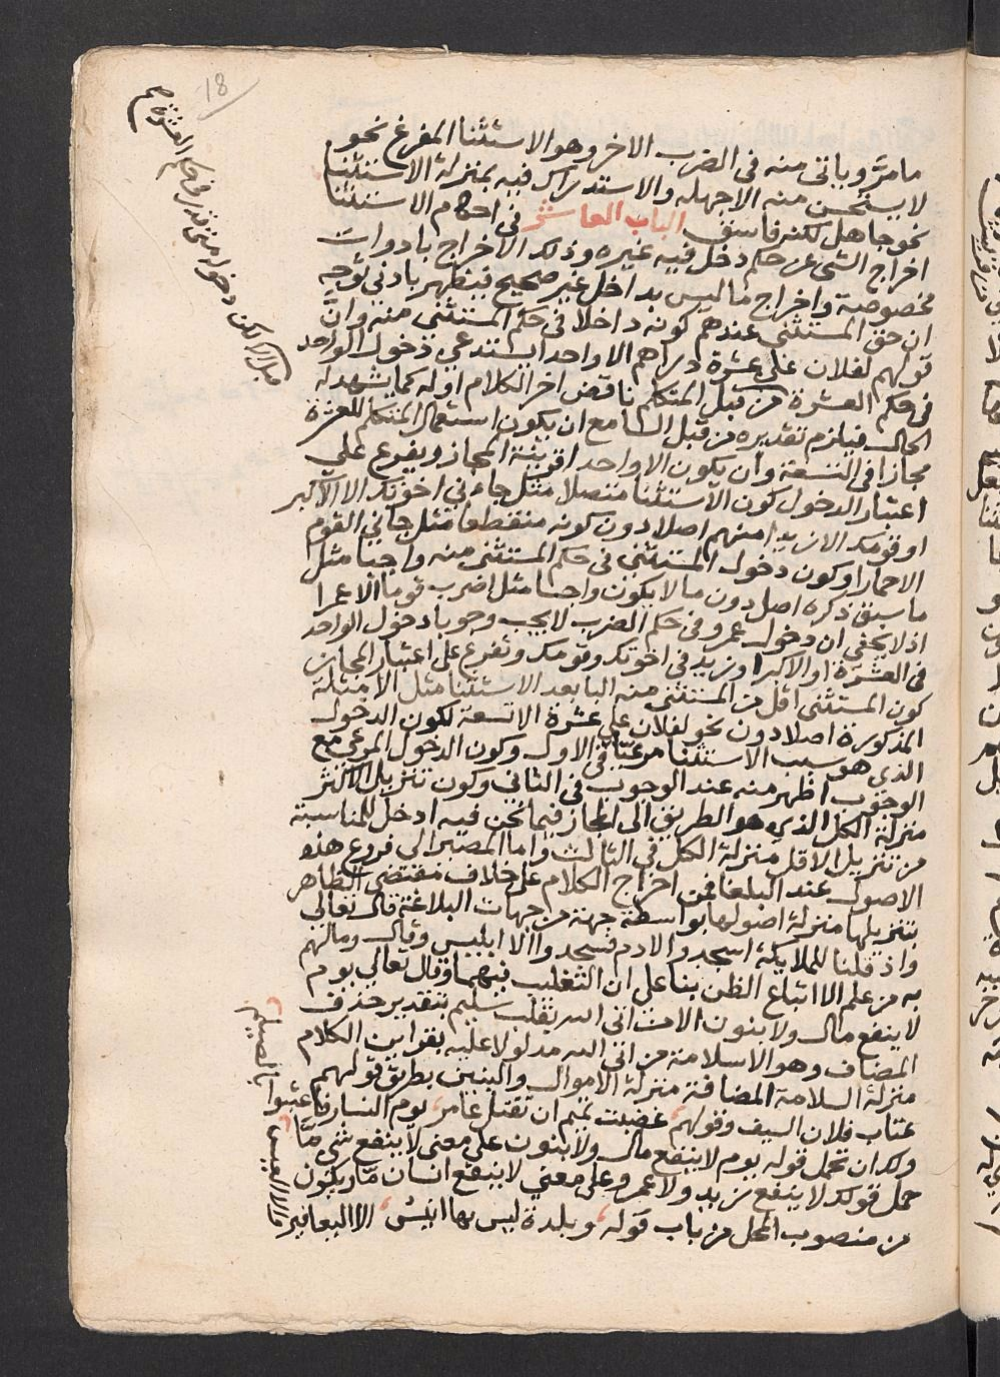 18
مامرّ وياتى منه فى الضرب الاخر وهو الاستثنا المفرغ نحو
لا يستحسن منه الا جهله والاستدراك فيه بمنزلة الاستثنا
نحو جاهل لكنه فاسق الباب العاشر فى احكام الاستثنا
اخراج الشى عن حكم دخل فيه غيره وذلك الاخراج بادوات
مخصوصة واخراج ما ليس بداخل غير صحيح فيظهر بادنى توجه
ان حق المستثنى عندهم كونه داخلا فى حكم المستثنى منه وانّ
قولهم لفلان على عشرة دراهم الا واحدا يستدعى دخول الواحد
فى حكم العشرة من قبل المتكلم ناقض اخر الكلام اوله كما يشهد له
الحال فيلزم تقديره من قبل السامع ان يكون استعمال المتكلم للعشرة
مجازا فى التسعة وان يكون الا واحدا قرينة المجاز ويفرع على
اعتبار الدخول كون الاستثنا متصلا مثل جاءنى اخوتك الا الاكبر
او قومك الا زيدا منهم اصلا دون كونه منقطعا مثل جانى القوم
الا حمارا وكون دخول المستثنى فى حكم المستثنى منه واجبا مثل
ما سبق ذكره اصل دون ما لا يكون واجبا مثل اضرب قوما الا عمرا
اذ لا يخفى ان دخول عمرو فى حكم الضرب لا يجب وجوبا دخول الواحد
فى العشرة او الاكبر او زيد فى اخوتك وقومك وتفرع على اعتبار المجاز
كون المستثنى اقل من المستثنى منه البا بعد الاستثنا مثل الامثلة
المذكورة اصلا دون نحو لفلان على عشرة الا تسعة لكون الدخول
الذى هو سبب الاستثنا مرعيّا فى الاول وكون الدخول المرعى مع
الوجوب اظهر منه عند الوجوب فى الثانى وكون تنزيل الاكثر
منزلة الكل الذى هو الطريق الى المجاز فيما نحن فيه ادخل للمناسبة
من تنزيل الاقل منزلة الكل فى الثالث واما المصير الى فروع هذه
الاصول عند البلغا فمن اخراج الكلام على خلاف مقتضى الظاهر
بتنزيلها منزلة اصولها بواسطة جهة من جهات البلاغة قال تعالى
واذ قلنا للملايكة اسجدوا لادم فسجدوا الا ابليس وقال ومالهم
به من علم الا اتباع الظن بنا على ان التغليب فيهما وقال تعالى يوم
لا ينفع مال ولا بنون الا من اتى الله بقلب سليم بتقدير حذف
المضاف وهو الا سلامة من اتى الله مدلولا عليه بقرايين الكلام
منزلة السلامة المضافة منزلة الاموال والبنين بطريق قولهم
عتاب فلان السيف وقولهم غضبت تميم ان تقتل عامر يوم النسار فاعتبوا بالصيلم
ولك ان تحمل قوله يوم لا ينفع مال ولا بنون على معنى لا ينفع شى مّا
حمل قولك لا ينفع زيد ولا عمرو على معنى لا ينفع انسان مّا ويكون
من منصوب المحل من باب قوله وبلدة ليس بها انيس الا اليعافير والا العيس